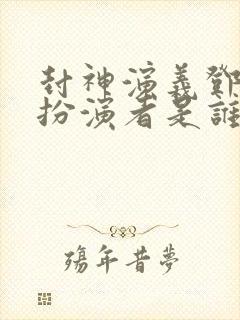 封神演義鄧
扮演者是誰
殤年昔夢